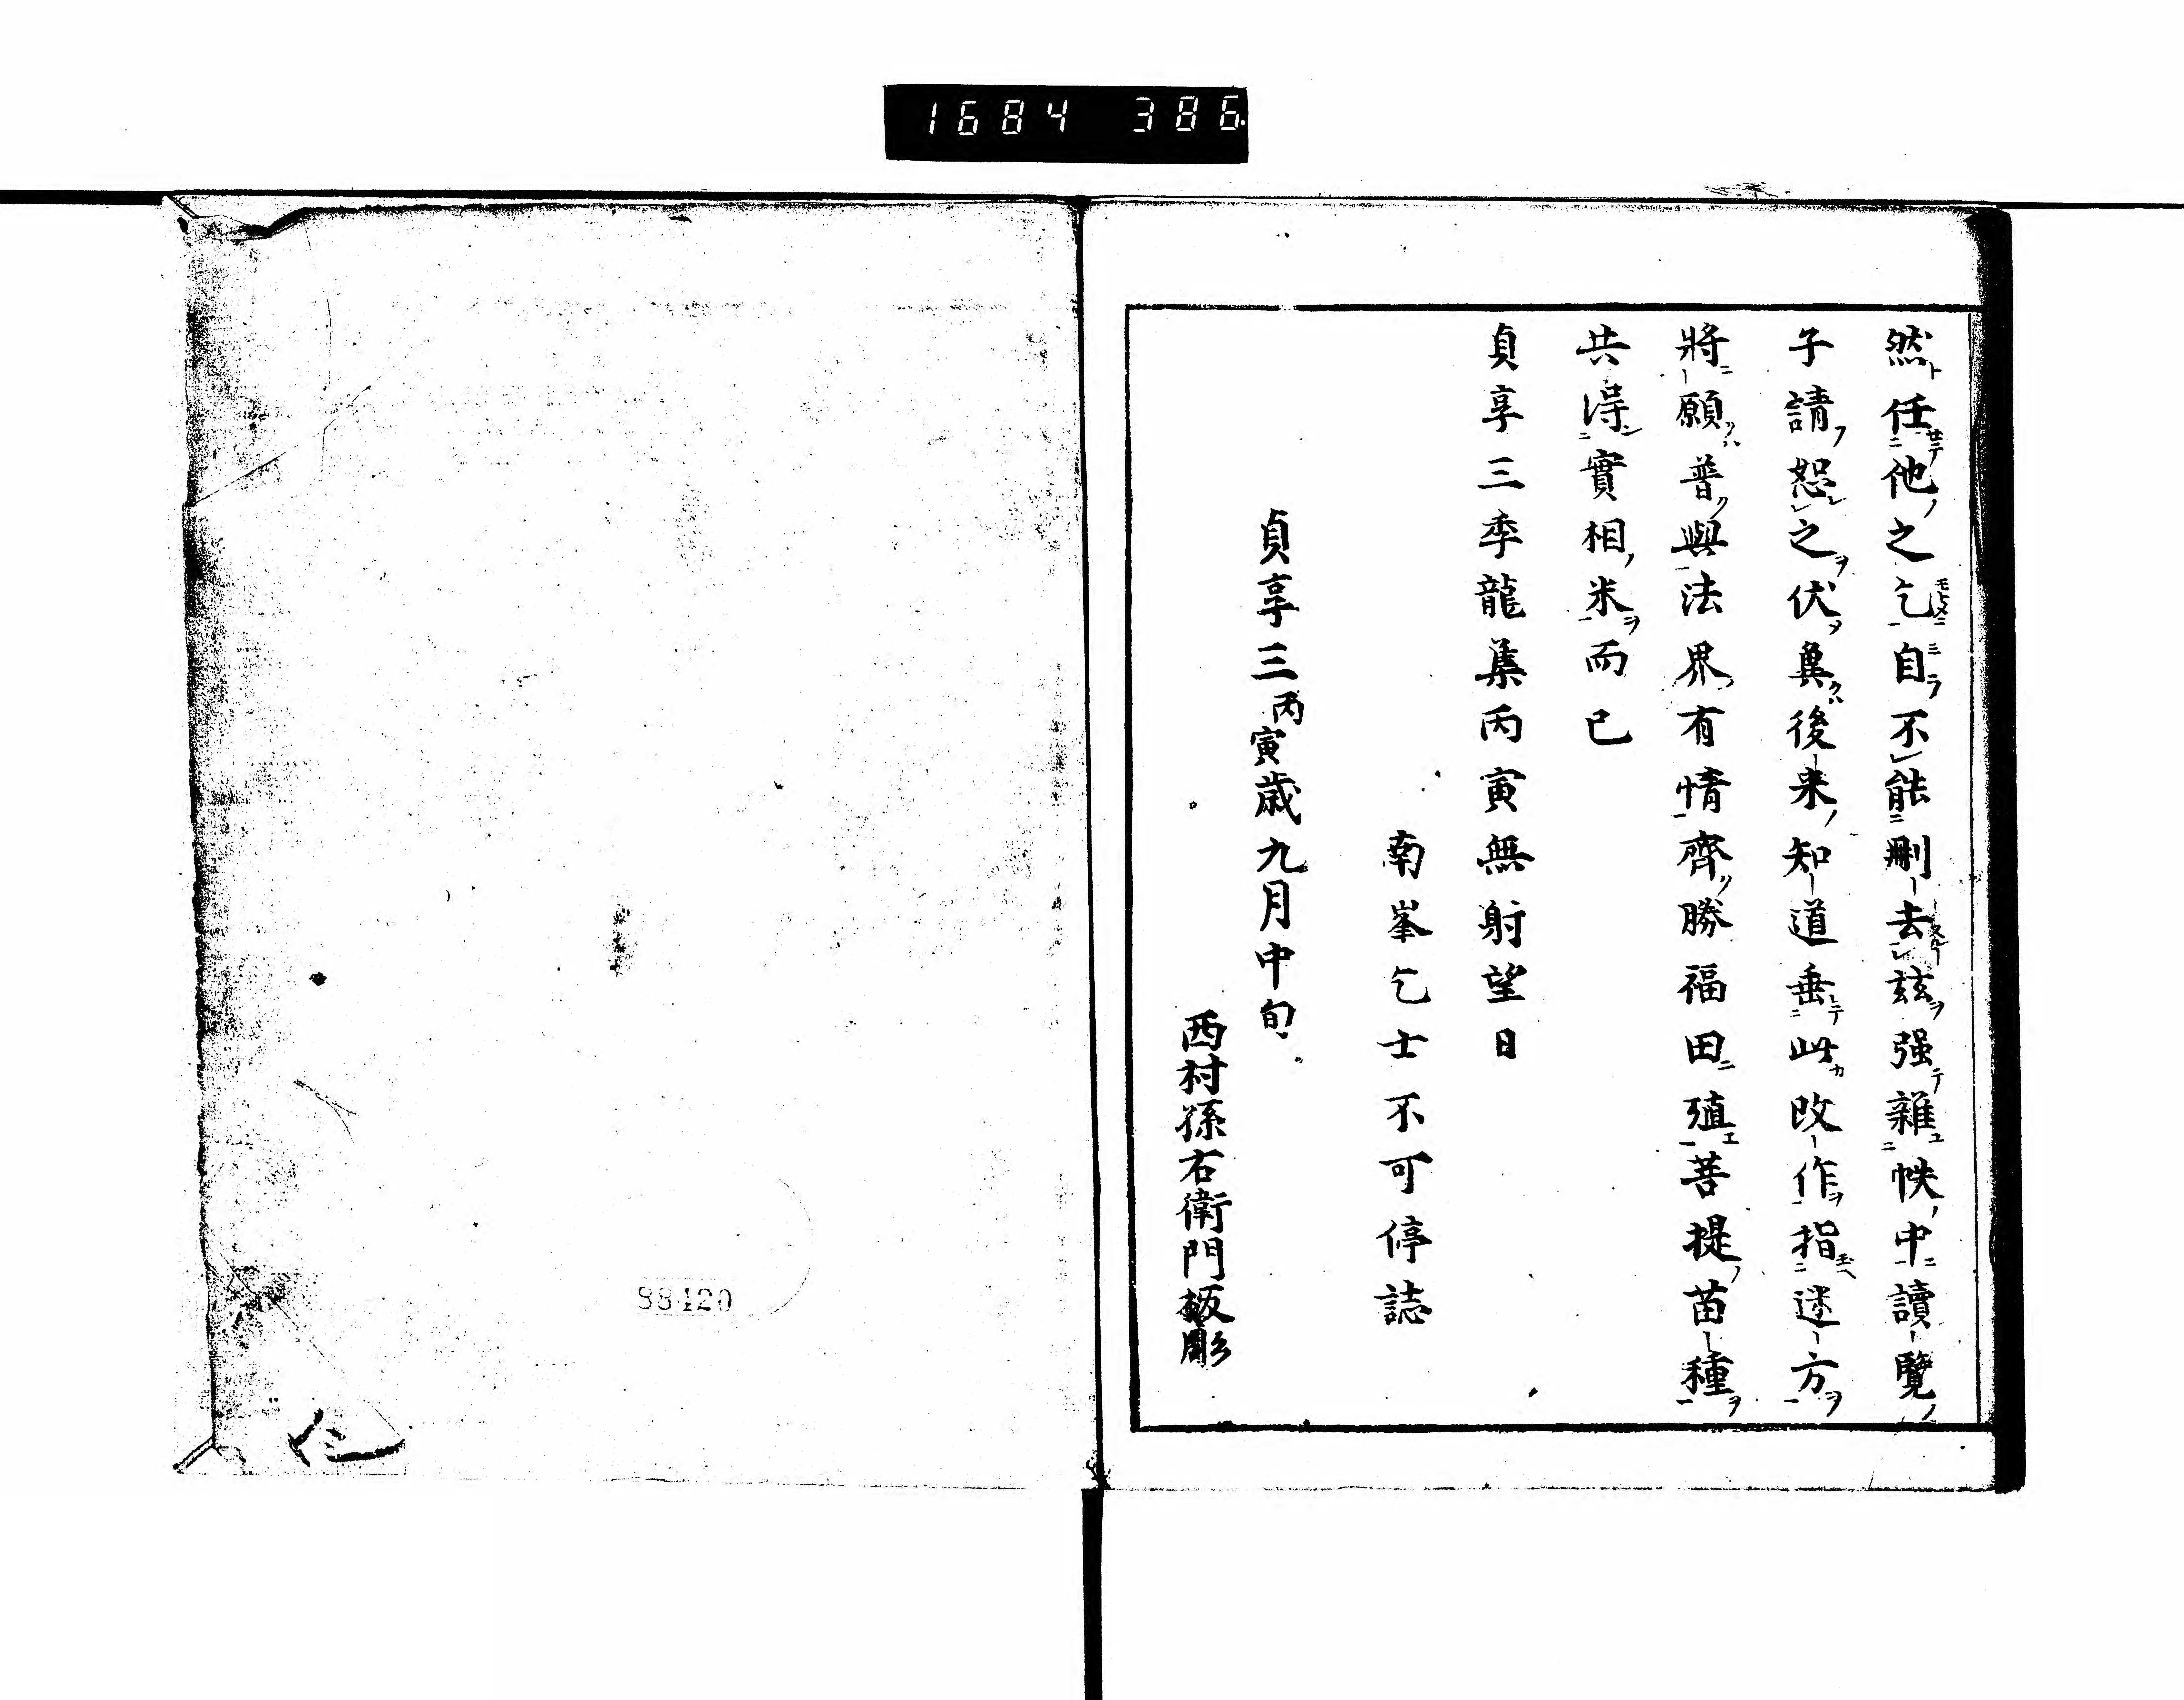 1684 386
然任他之乞自不能刪去玆强雜帙中讀覽
子請恕之伏兾後来知道垂此改作指迷方
將願普與法界有情齊勝福田殖菩提苗種
共淂實相米而已
貞享三季龍集丙寅無射望日
南峯乞士不可停誌
貞享三丙寅歲九月中旬
西村孫右衛門板彫
98420